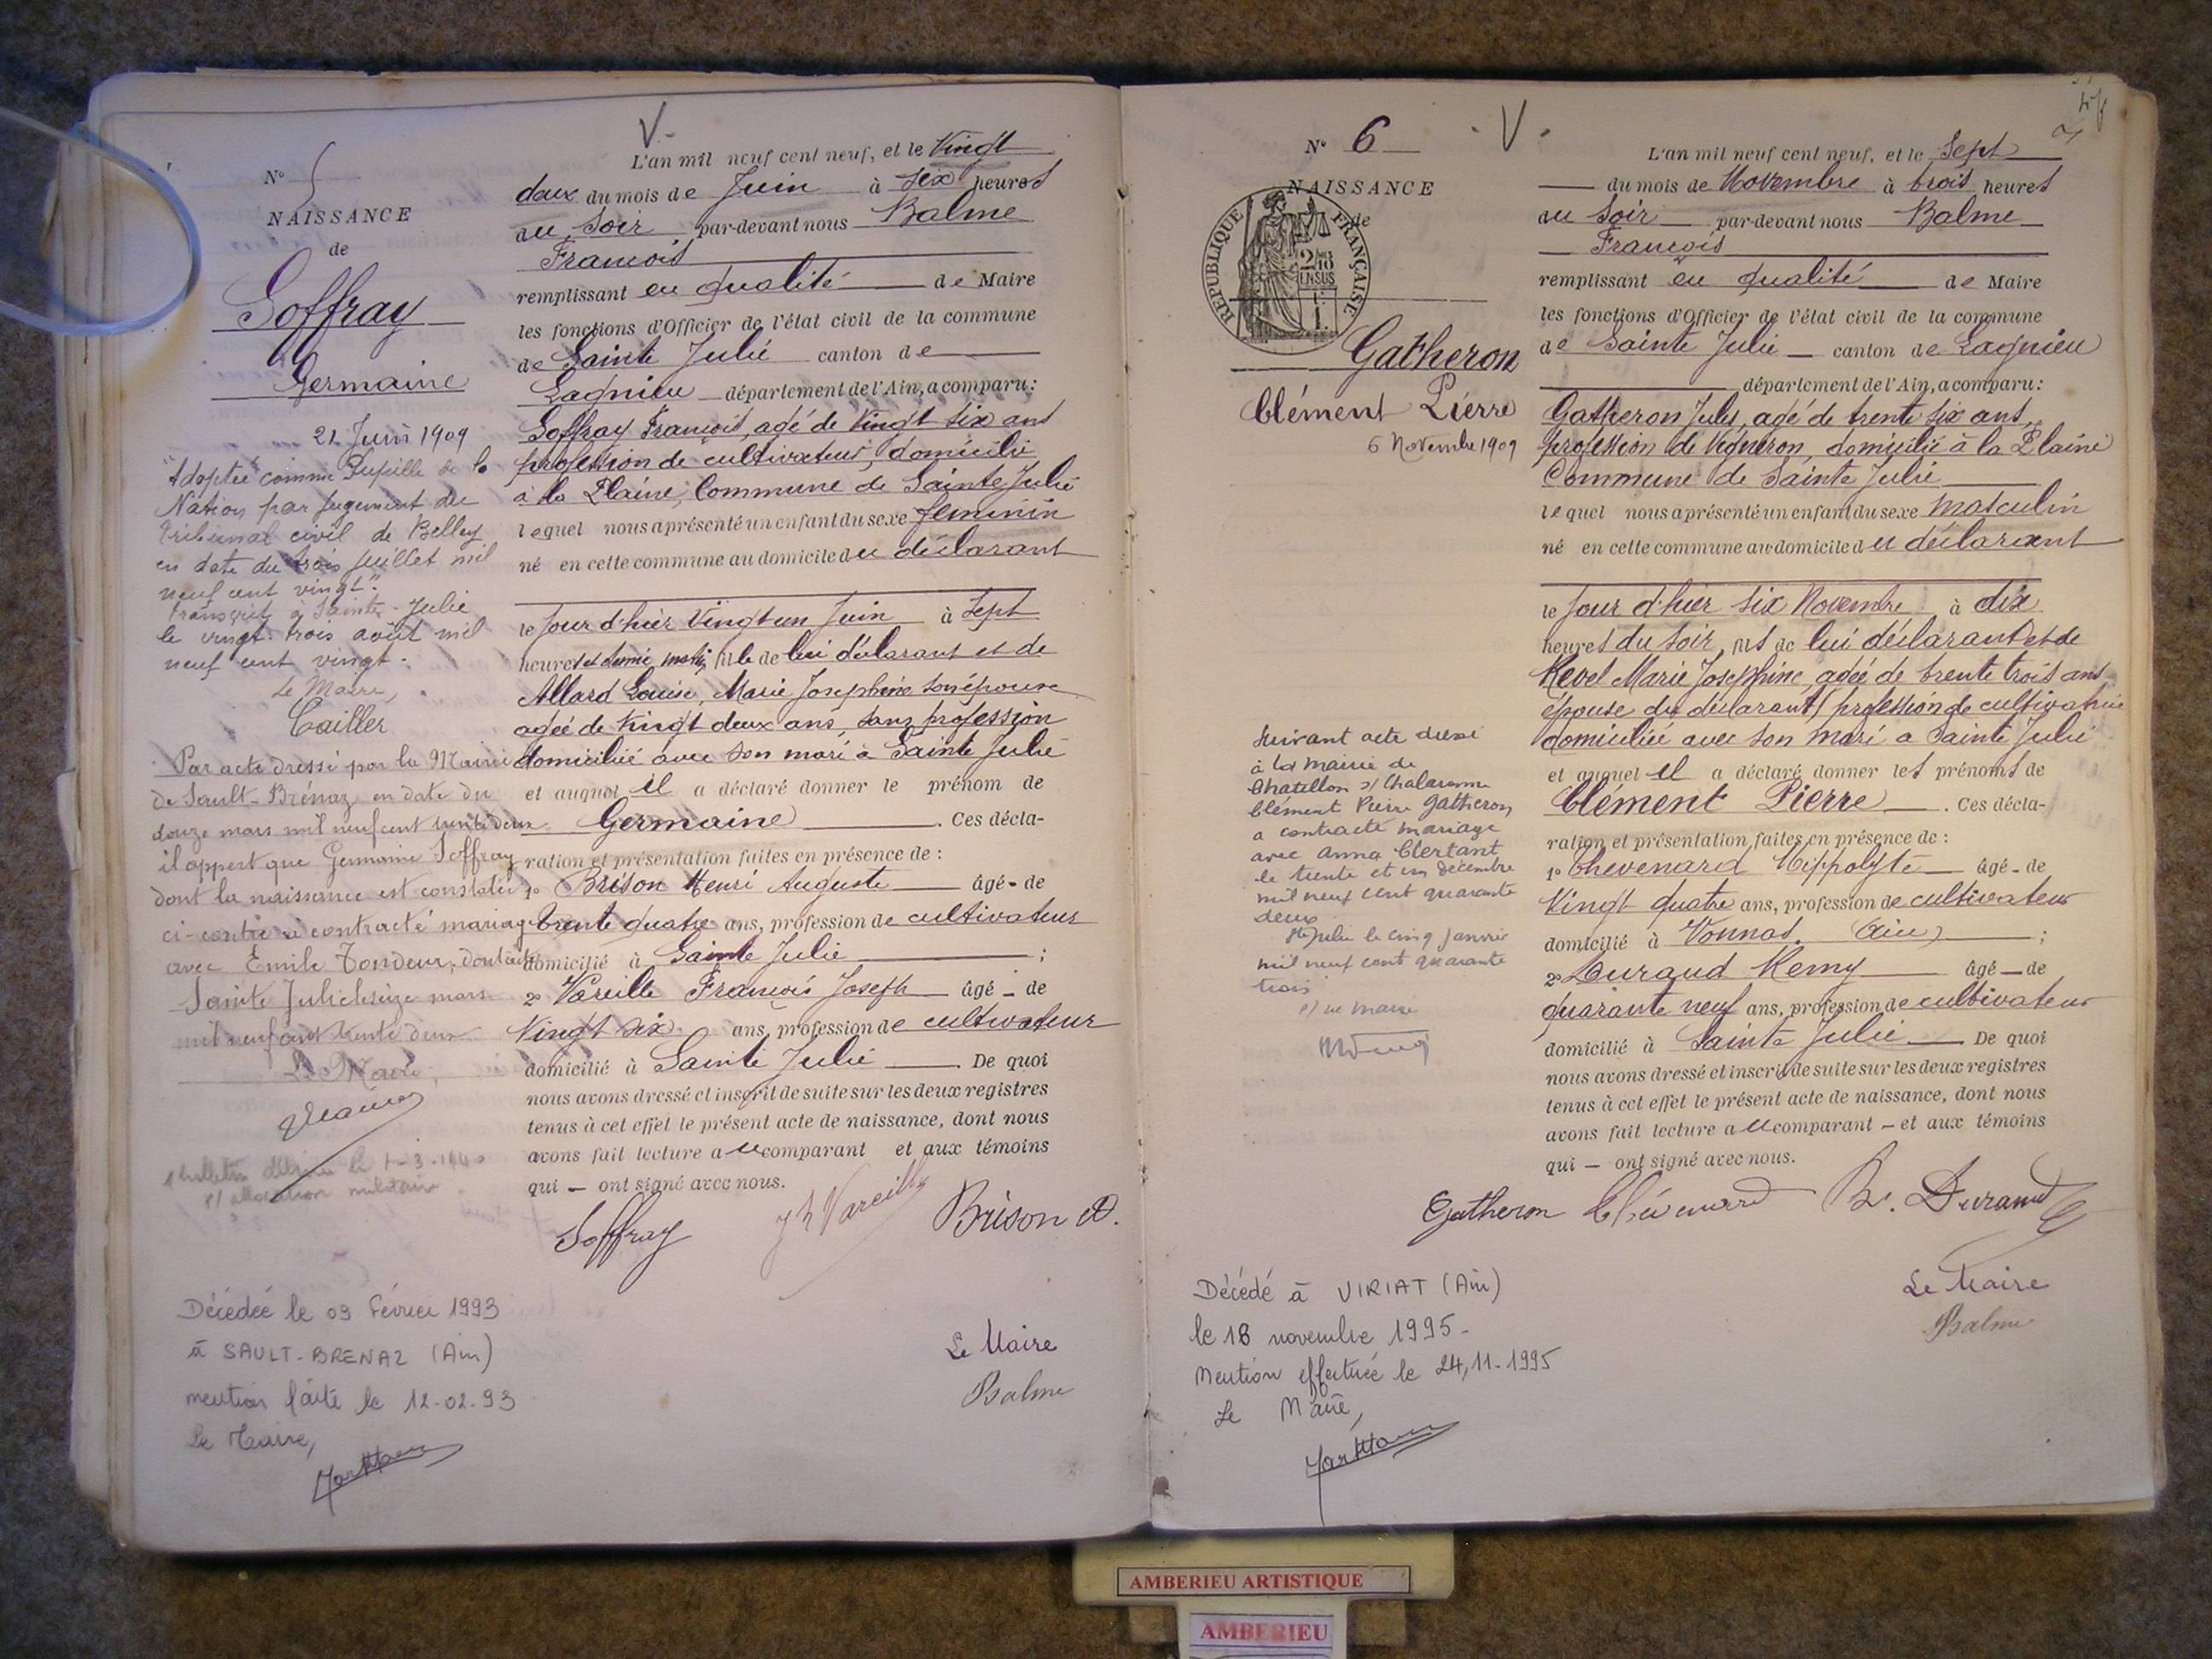 V.
N° 5
NAISSANCE
de
Soffray
Germaine
21 Juin 1909
"Adoptée comme Pupille de la
Nation par jugement du
tribunal civil de Belley
en date du trois juillet mil
neuf cent vingt".
Transcrit à Sainte-Julie
le vingt-trois août mil
neuf cent vingt.
Le Maire,
Cailler
Par acte dressé par la Mairie
de Sault-Brénaz en date du
douze mars mil neuf cent trente deux
il appert que Germaine Soffray
dont la naissance est constatée
ci-contre a contracté mariage
avec Emile Tondeur, dont acte
Sainte Julie le seize mars
mil neuf cent trente deux
Le Maire,
1 bulletin délivré le 1-3-1940
p/ allocation militaire
Décédée le 09 février 1993
à SAULT-BRENAZ (Ain)
mention faite le 12-02-93
Le Maire,
L'an mil neuf cent neuf, et le Vingt
deux du mois de Juin à six heures
au soir par-devant nous Balme
François
remplissant en qualité de Maire
les fonctions d'Officier de l'état civil de la commune
de Sainte Julie canton de
Lagnieu département de l'Ain, a comparu:
Soffray François, agé de Vingt six ans
profession de cultivateur, domicilié
à la Plaine, Commune de Sainte Julie
lequel nous a présenté un enfant du sexe féminin
né en cette commune au domicile du déclarant
le jour d'hier Vingt un Juin à Sept
heures et demie matin, fille de lui déclarant et de
Allard Louise, Marie Josephine son épouse
agée de Vingt deux ans, sans profession
domiciliée avec son mari à Sainte Julie
et auquel il a déclaré donner le prénom de
Germaine. Ces décla-
ration et présentation faites en présence de :
1° Brison Henri Auguste âgé de
trente quatre ans, profession de cultivateur
domicilié à Sainte Julie ;
2° Vareille François Joseph âgé de
Vingt six ans, profession de cultivateur
domicilié à Sainte Julie De quoi
nous avons dressé et inscrit de suite sur les deux registres
tenus à cet effet le présent acte de naissance, dont nous
avons fait lecture au comparant et aux témoins
qui — ont signé avec nous.
Soffray J h Vareille Brison A.
Le Maire
Balme
N° 6
V
NAISSANCE
de
REPUBLIQUE FRANÇAISE
Gatheron
Clément Pierre
6 Novembre 1909
Suivant acte dressé
à la mairie de
Chatillon s/ Chalaronne
Clément Pierre Gatheron
a contracté mariage
avec Anna Clertant
le trente et un décembre
mil neuf cent quarante
deux
Ste Julie le cinq janvier
mil neuf cent quarante
trois
p/ le maire
Décédé à VIRIAT (Ain)
le 18 novembre 1995-
Mention effectuée le 24-11-1995
Le Maire,
L'an mil neuf cent neuf, et le Sept
du mois de Novembre à trois heures
au Soir par-devant nous Balme
François
remplissant en qualité de Maire
les fonctions d'Officier de l'état civil de la commune
de Sainte Julie — canton de Lagnieu
département de l'Ain, a comparu:
Gatheron Jules, agé de trente six ans,
profession de Vigneron, domicilié à la Plaine
Commune de Sainte Julie
lequel nous a présenté un enfant du sexe masculin
né en cette commune au domicile du déclarant
le jour d'hier six Novembre à dix
heures du soir, fils de lui déclarant et de
Revel Marie Josephine, agée de trente trois ans
épouse du déclarant, profession de cultivatrice
domiciliée avec son mari a Sainte Julie
et auquel il a déclaré donner les prénoms de
Clément Pierre. Ces décla-
ration et présentation faites en présence de :
1° Chevenard Hippolyte âgé de
Vingt quatre ans, profession de cultivateur
domicilié à Vonnas (Ain) ;
2° Durand Remy âgé — de
quarante neuf ans, profession de cultivateur
domicilié à Sainte Julie De quoi
nous avons dressé et inscrit de suite sur les deux registres
tenus à cet effet le présent acte de naissance, dont nous
avons fait lecture au comparant — et aux témoins
qui — ont signé avec nous.
Gatheron Chévenard R. Durand
Le Maire
Balme
AMBERIEU ARTISTIQUE
AMBERIEU